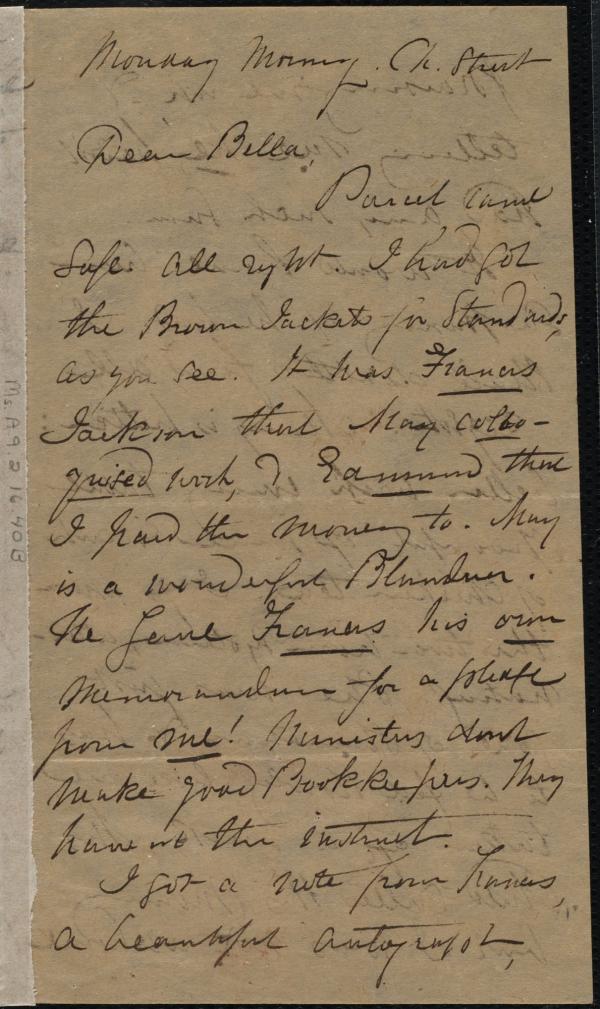 Monday Morning. Ch. Street
Dear Bella,
Parcel came
safe. All right. I had got
the Brown Jackets for Standards,
as you see. It was Francis
Jackson that May collo-
quised with, & Edmund that
I paid the money to. May
is a wonderful Blunderer.
He gave Francis his own
memorandum for a pledge
from me! Ministers dont
make good Bookkeepers. They
have not the instinct.
I got a note from Francis,
a beautiful autograph,
Ms. A 9.2 16.40B